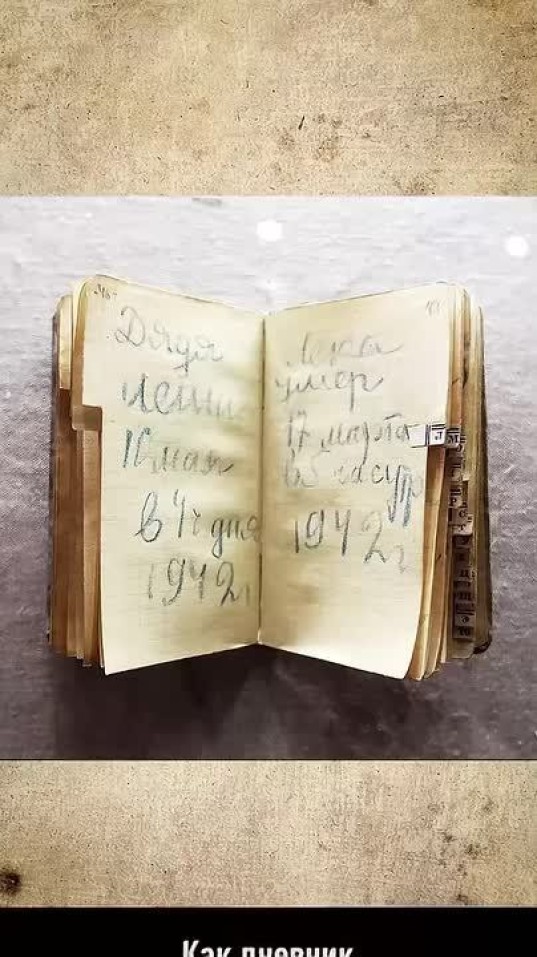 Дядя
Леша
10 мая
в 4 ч дня
1942 г
Лека
умер
17 марта
в 5 часутр
1942 г
Л М
Как дневник